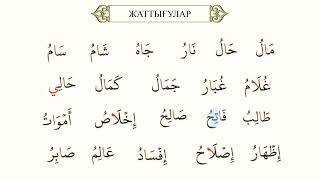 ЖАТТЫҒУЛАР
مَالُ حَالُ نَارُ جَاهُ شَامُ سَامُ
غُلَامُ غُبَارُ جَمَالُ كَمَالُ حَالِي
طَالِبُ فَاتِحُ صَالِحُ إِخْلَاصُ أَمْوَاتُ
إِظْهَارُ إِصْلَاحُ إِفْسَادُ عَالِمُ صَابِرُ